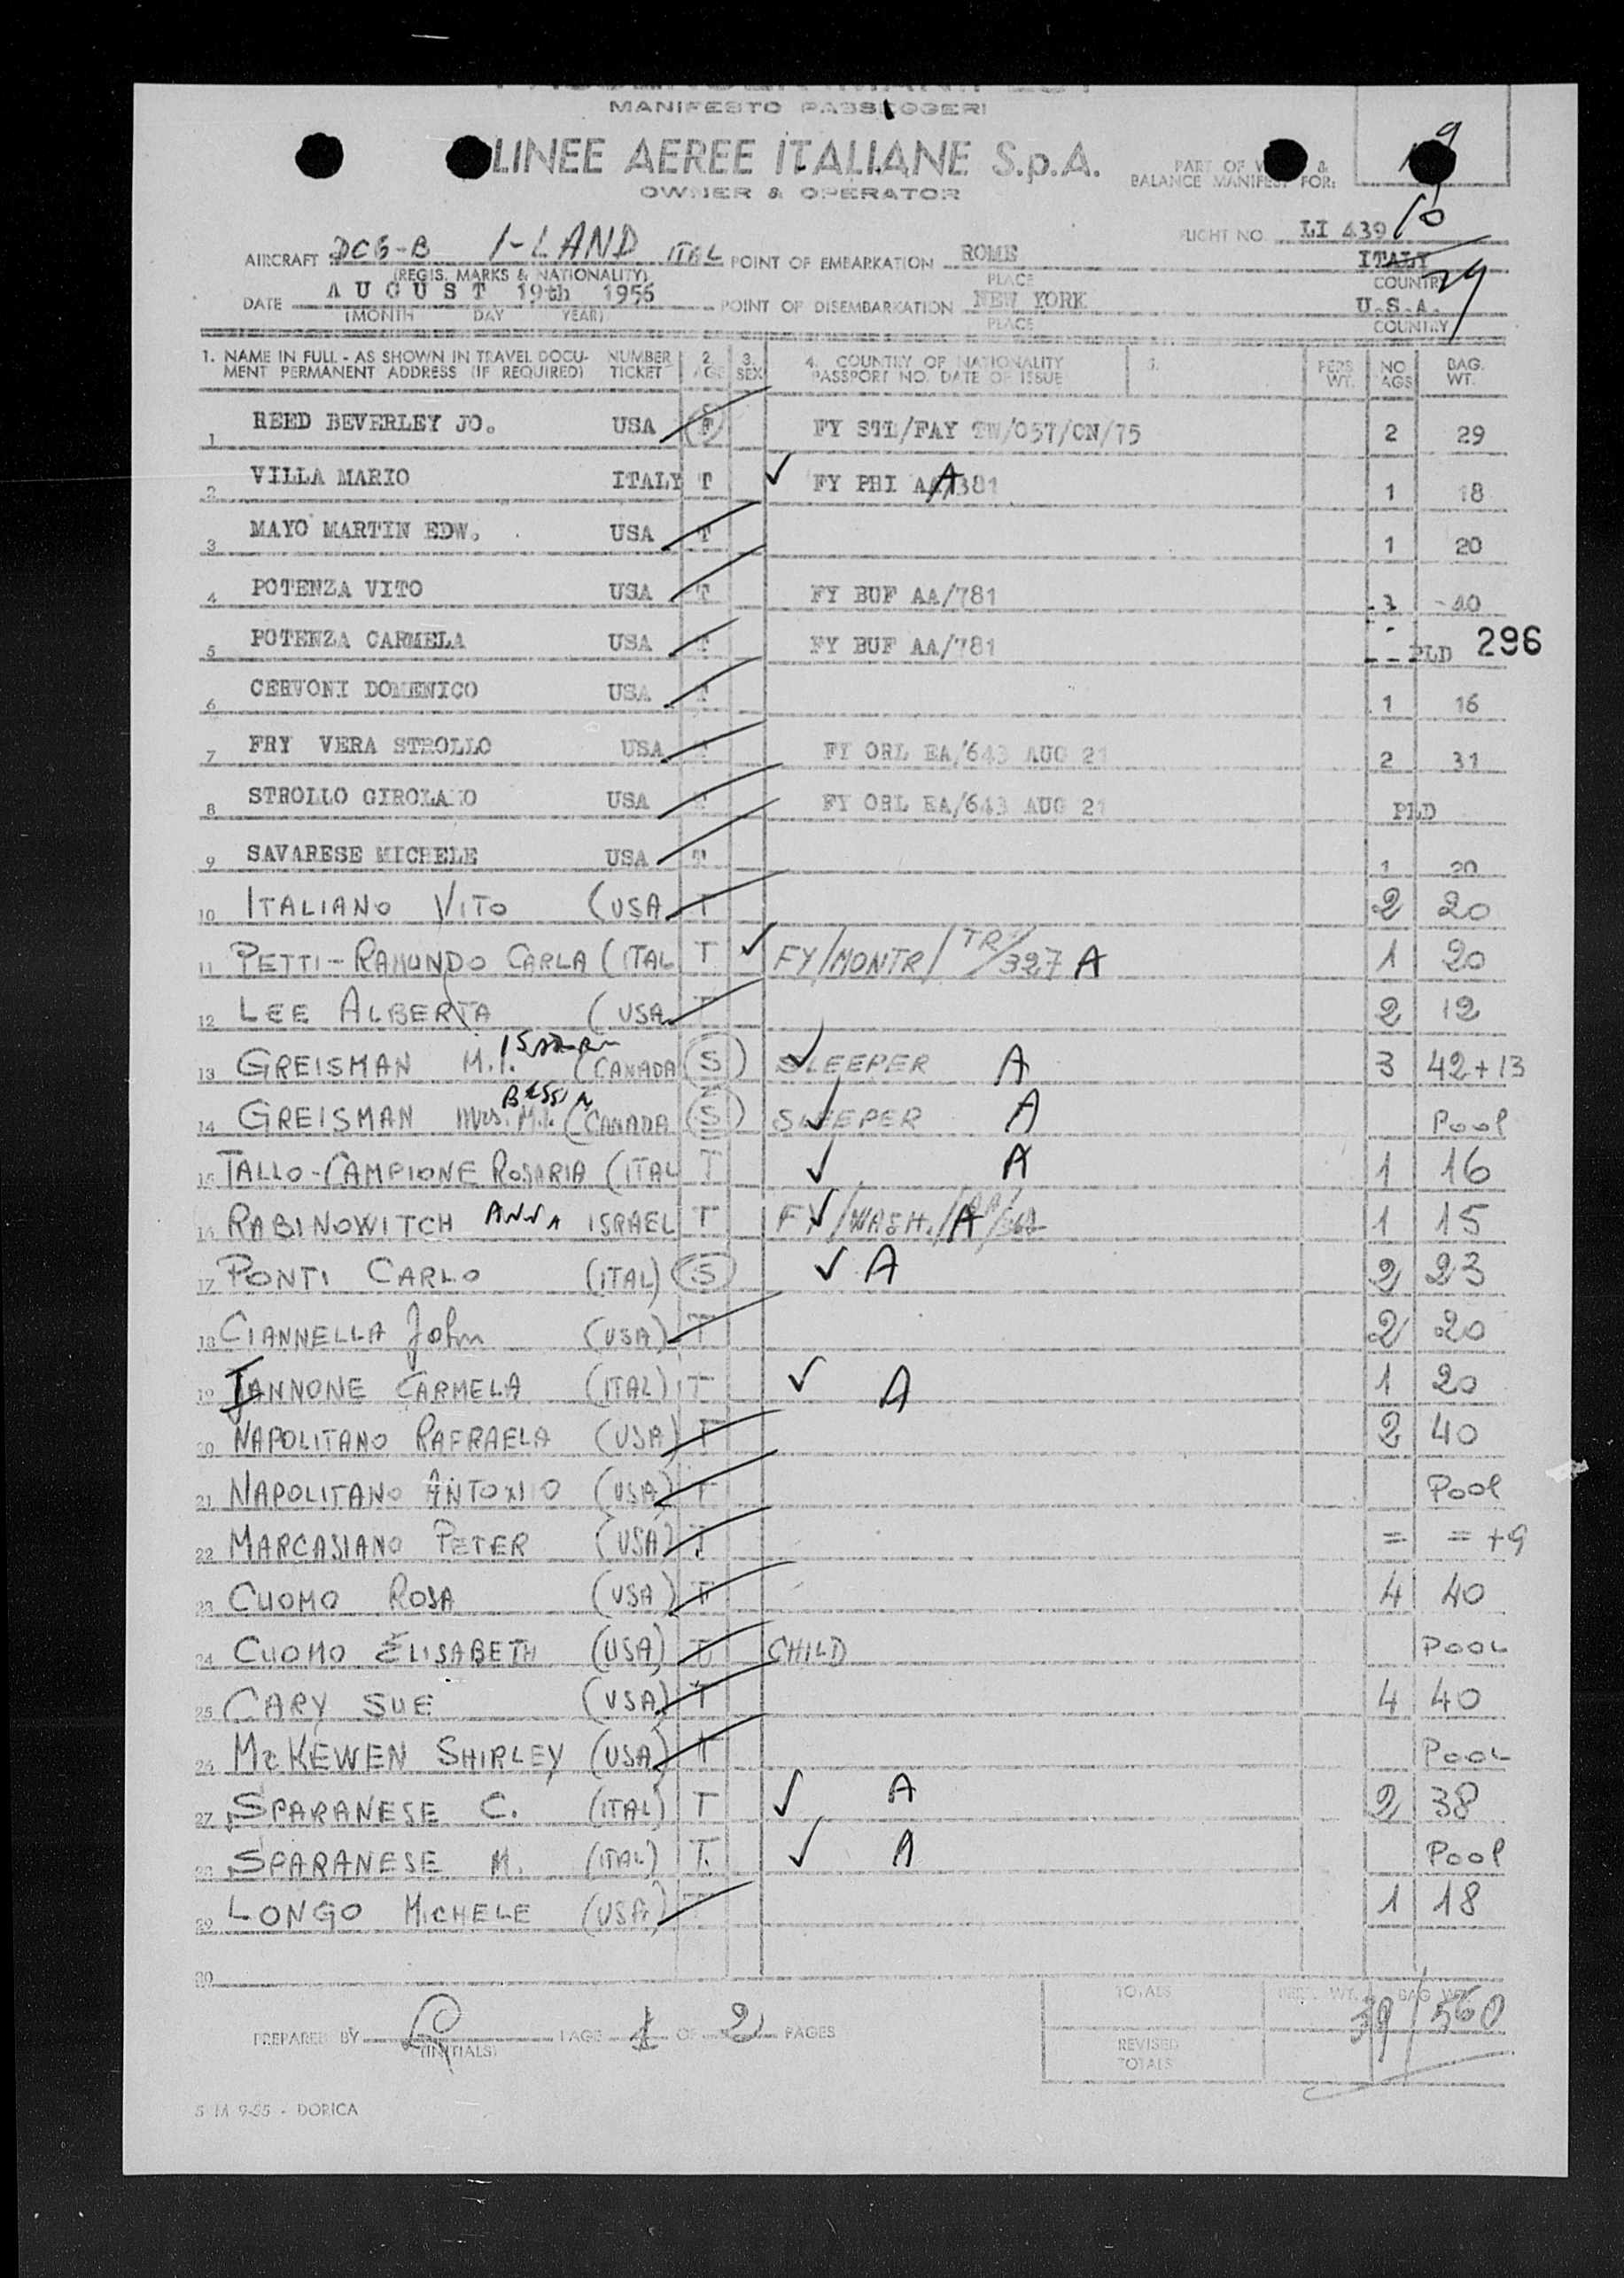 MANIFESTO PASSEGGERI
LINEE AEREE ITALIANE S.p.A.
OWNER & OPERATOR
PART OF & BALANCE MANIFEST FOR:
FLIGHT NO. LI 439
AIRCRAFT DC6-B I-LAND ITAL POINT OF EMBARKATION ROME ITALY
(REGIS. MARKS & NATIONALITY) PLACE COUNTRY
DATE AUGUST 19th 1956 POINT OF DISEMBARKATION NEW YORK U.S.A.
(MONTH DAY YEAR) PLACE COUNTRY
1. NAME IN FULL - AS SHOWN IN TRAVEL DOCU- NUMBER 2. 3. 4. COUNTRY OF NATIONALITY 5. PERS NO BAG.
MENT PERMANENT ADDRESS (IF REQUIRED) TICKET AGE SEX PASSPORT NO. DATE OF ISSUE WT. AGS WT.
1 REED BEVERLEY JO. USA FY STL/FAY TW/057/CN/75 2 29
2 VILLA MARIO ITALY T ✓ FY PHI AA/381 A 1 18
3 MAYO MARTIN EDW. USA T 1 20
4 POTENZA VITO USA T FY BUF AA/781
5 POTENZA CARMELA USA T FY BUF AA/781 PLD 296
6 CERVONI DOMENICO USA T 1 16
7 FRY VERA STROLLO USA T FY ORL EA/643 AUG 21 2 31
8 STROLLO GIROLAMO USA T FY ORL EA/643 AUG 21 PLD
9 SAVARESE MICHELE USA T 1 20
10 ITALIANO VITO (USA T 2 20
11 PETTI-RAMUNDO CARLA (ITAL T ✓ FY/MONTR/TR/327 A 1 20
12 LEE ALBERTA (USA T 2 12
13 GREISMAN M.I. (CANADA S ✓ SLEEPER A 3 42+13
14 GREISMAN Mrs. M.I. (CANADA S ✓ SLEEPER A Pool
15 TALLO-CAMPIONE ROSARIA (ITAL T ✓ A 1 16
16 RABINOWITCH ANNA ISRAEL T ✓ FY/WASH./ A 1 15
17 PONTI CARLO (ITAL) S ✓ A 2 23
18 CIANNELLA John (USA) T 2 20
19 IANNONE CARMELA (ITAL) T ✓ A 1 20
20 NAPOLITANO RAFRAELA (USA) T 2 40
21 NAPOLITANO ANTONIO (USA) T Pool
22 MARCASIANO PETER (USA) T = = +9
23 CUOMO ROSA (USA) T 4 40
24 CUOMO ELISABETH (USA) T CHILD POOL
25 CARY SUE (USA) T 4 40
26 McKEWEN SHIRLEY (USA) T POOL
27 SPARANESE C. (ITAL) T ✓ A 2 38
28 SPARANESE M. (ITAL) T. ✓ A Pool
29 LONGO MICHELE (USA) T 1 18
30
TOTALS WT. BAG WT.
39/560
PREPARED BY (INITIALS) PAGE 1 OF 2 PAGES
REVISED TOTALS
5 M 9-55 - DORICA